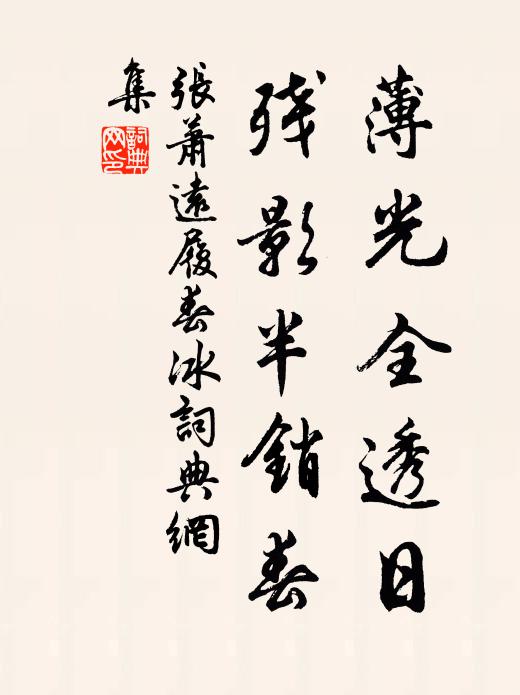 薄光全透日
残影半銷春
張蕭遠履春冰詞典網
集
詞典網印